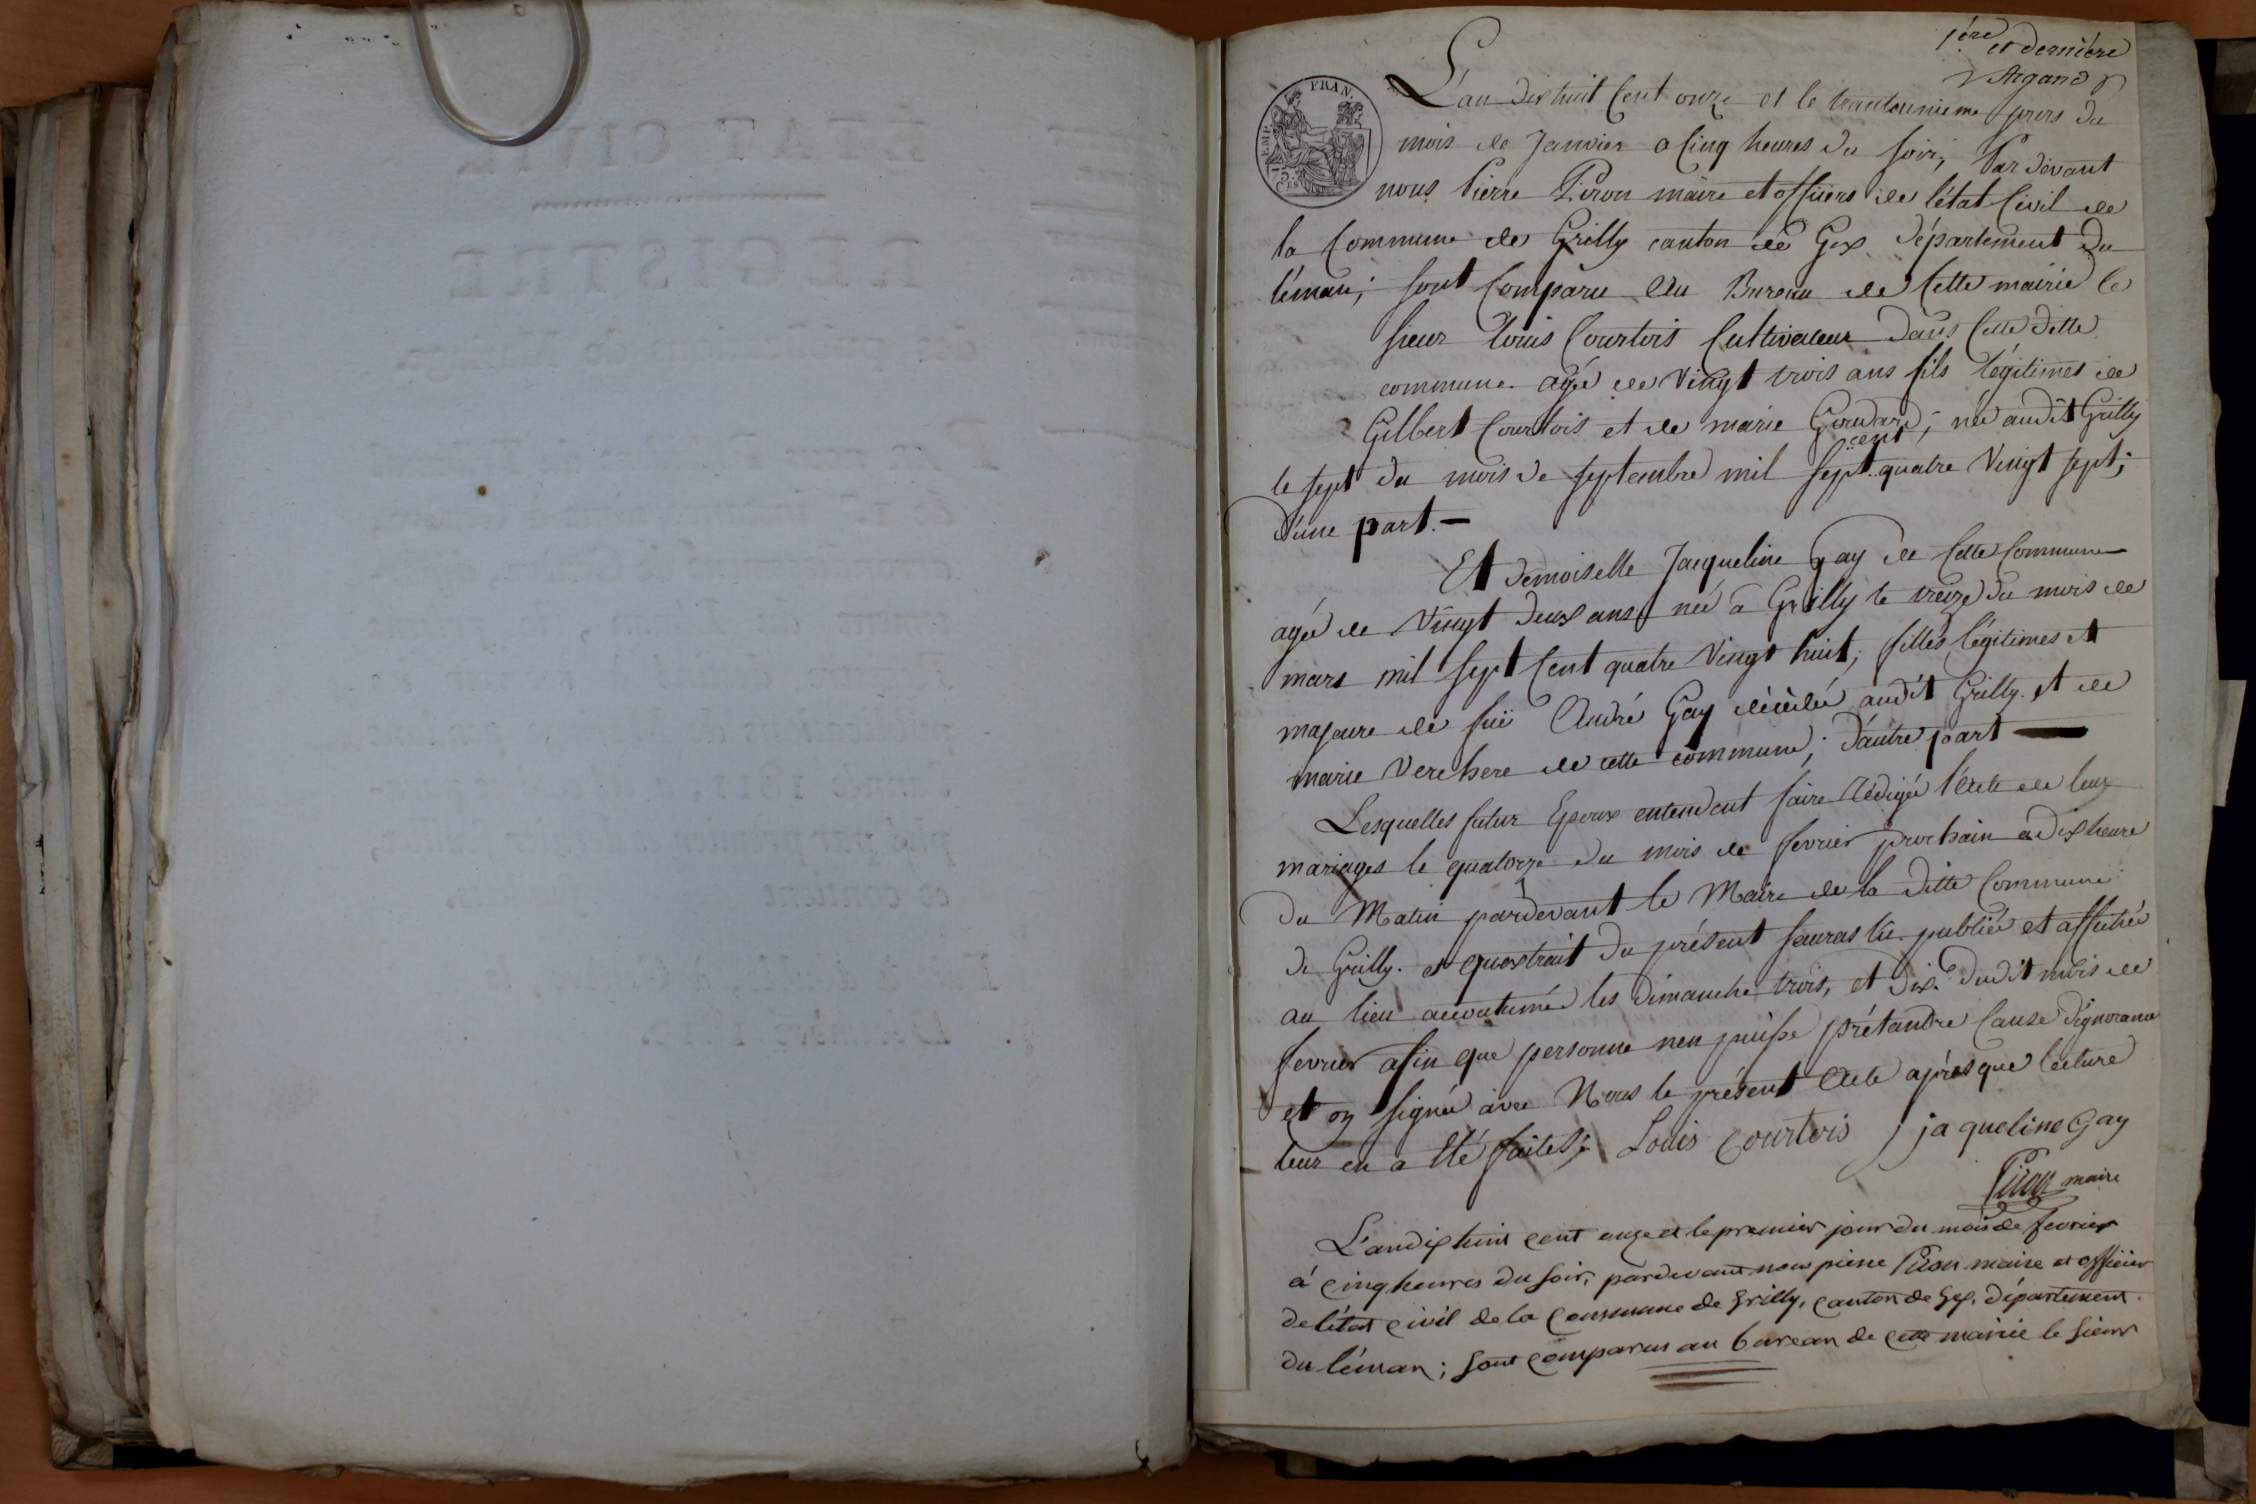 1ére et dernière
Argand
L'an dix huit Cent onze et le trantunième jours du
mois de Janvier a Cinq heures du soir; Par devant
nous Pierre Piron maire et officiers de l'état Civil de
la Commune de Grilly canton de Gex département du
léman; sont Comparu Au Bureau de Cette mairie le
sieur Louis Courtois Cultivateur dans Cette ditte
commune agé de Vingt trois ans fils légitimes de
Gilbert Courtois et de marie ; né audit Grilly
le sept du mois de septembre mil sept cent quatre Vingt sept;
d'une part. —
Et demoiselle Jacqueline Gay de Cette Commune
agée de Vingt deux ans né à Grilly le treize du mois de
mars mil sept Cent quatre Vingt huit; filles légitimes et
majeure de füi André Gay décédé audit Grilly. et de
marie Verchere de cette commune; d'autre part —
Lesquelles futur Epoux entendent faire Rédigée l'Acte de leur
mariages le quatorze du mois de fevrier prochain a dix heure
du Matin pardevant le Maire de la ditte Commune
de Grilly. et quextrait du présent seras lü publiée et affichée
au lieu accoutumée les dimanche trois, et dix dudit mois de
fevrier afin que personne nen puisse prétandre Cause dignorance
et on signée avec Nous le présent Acte après que lecture
leur en a Eté faites; Louis courtois jaqueline Gay
Piron maire
L'an dix huit cent onze et le premier jour du mois de fevrier
à cinq heures du soir, pardevant nous pierre Piron maire et officier
de létat civil de la Commune de Grilly, canton de Gex, département
du léman; sont comparus au bureau de cette mairie le sieur